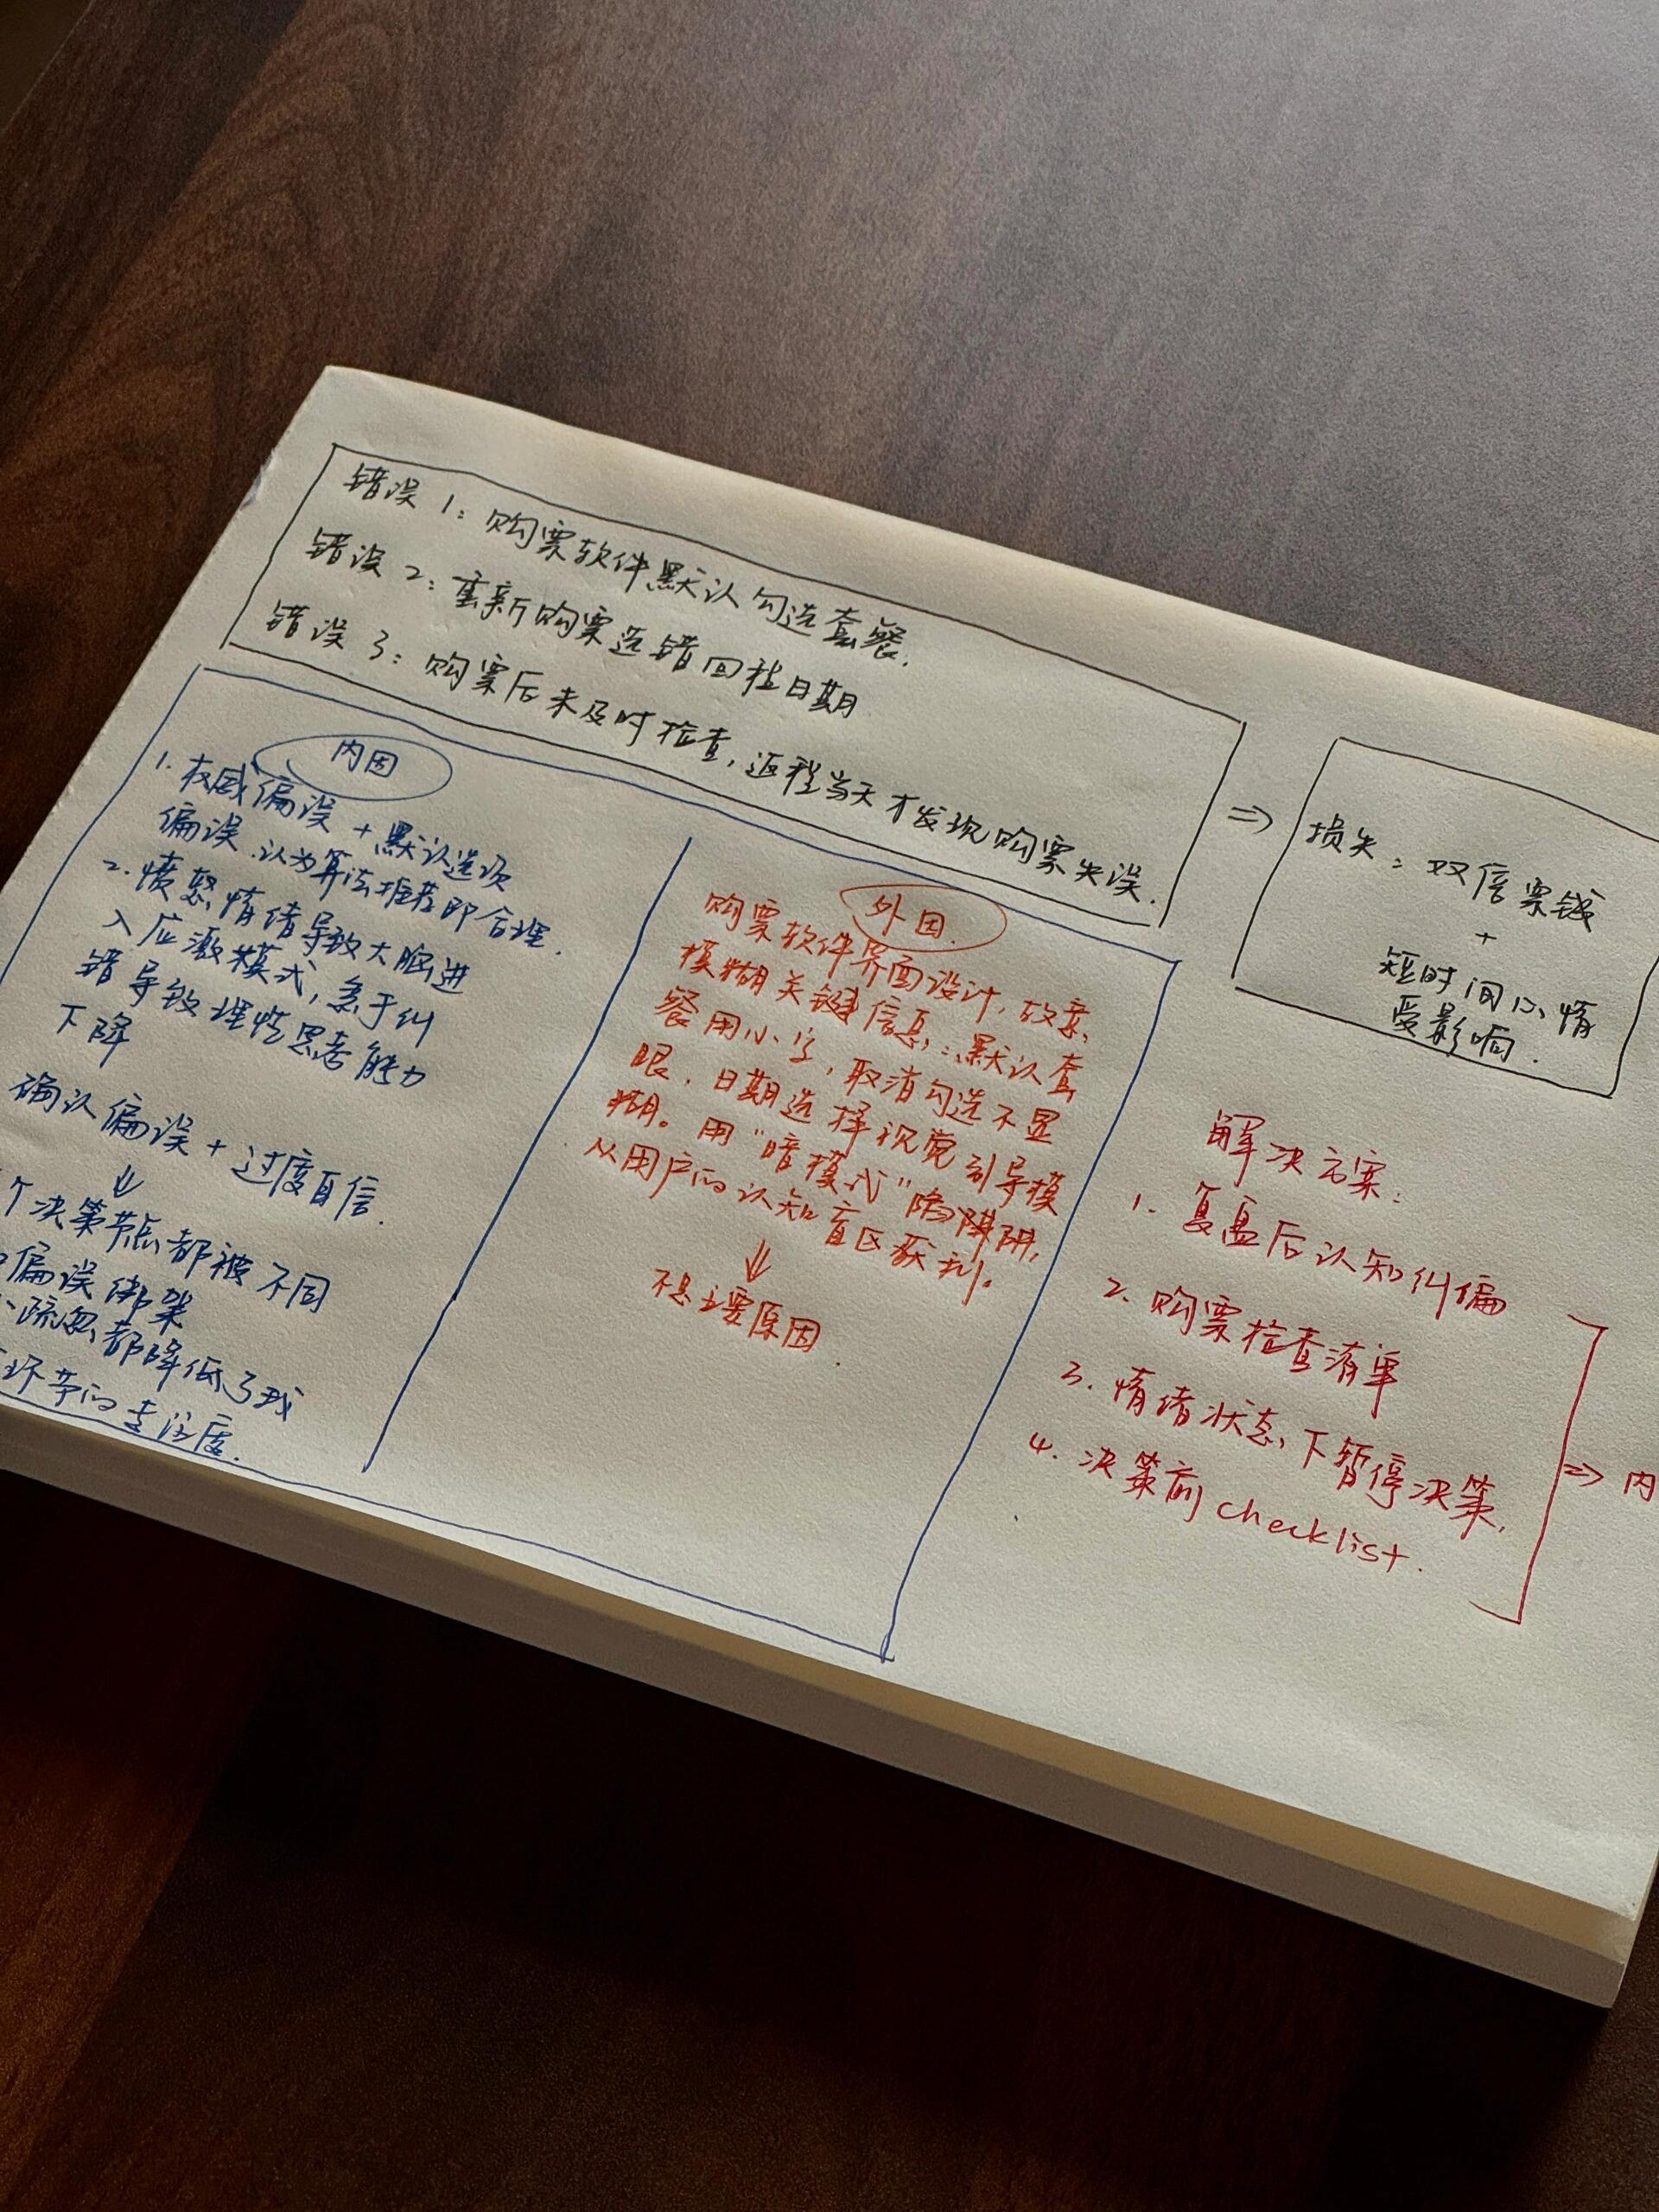 错误1：购票软件默认勾选套餐.
错误2：重新购票选错回程日期
错误3：购票后未及时检查，返程当天才发现购票失误.
⇒
损失：双倍票钱
+
短时间心情
受影响.
内因
1. 权威偏误+默认选项
偏误.认为算法推荐即合理.
2. 愤怒情绪导致大脑进
入应激模式，急于纠
错导致理性思考能力
下降
确认偏误+过度自信.
↓
个决策节点都被不同
偏误绑架
疏忽都降低了我
环节的专注度.
外因.
购票软件界面设计，故意
模糊关键信息：默认套
餐用小字，取消勾选不显
眼，日期选择视觉引导模
糊。用“暗模式”陷阱，
从用户的认知盲区获利。
↓
不是主要原因.
解决方案：
1. 复盘后认知纠偏
2. 购票检查清单
3. 情绪状态下暂停决策.
4. 决策前checklist.
⇒ 内